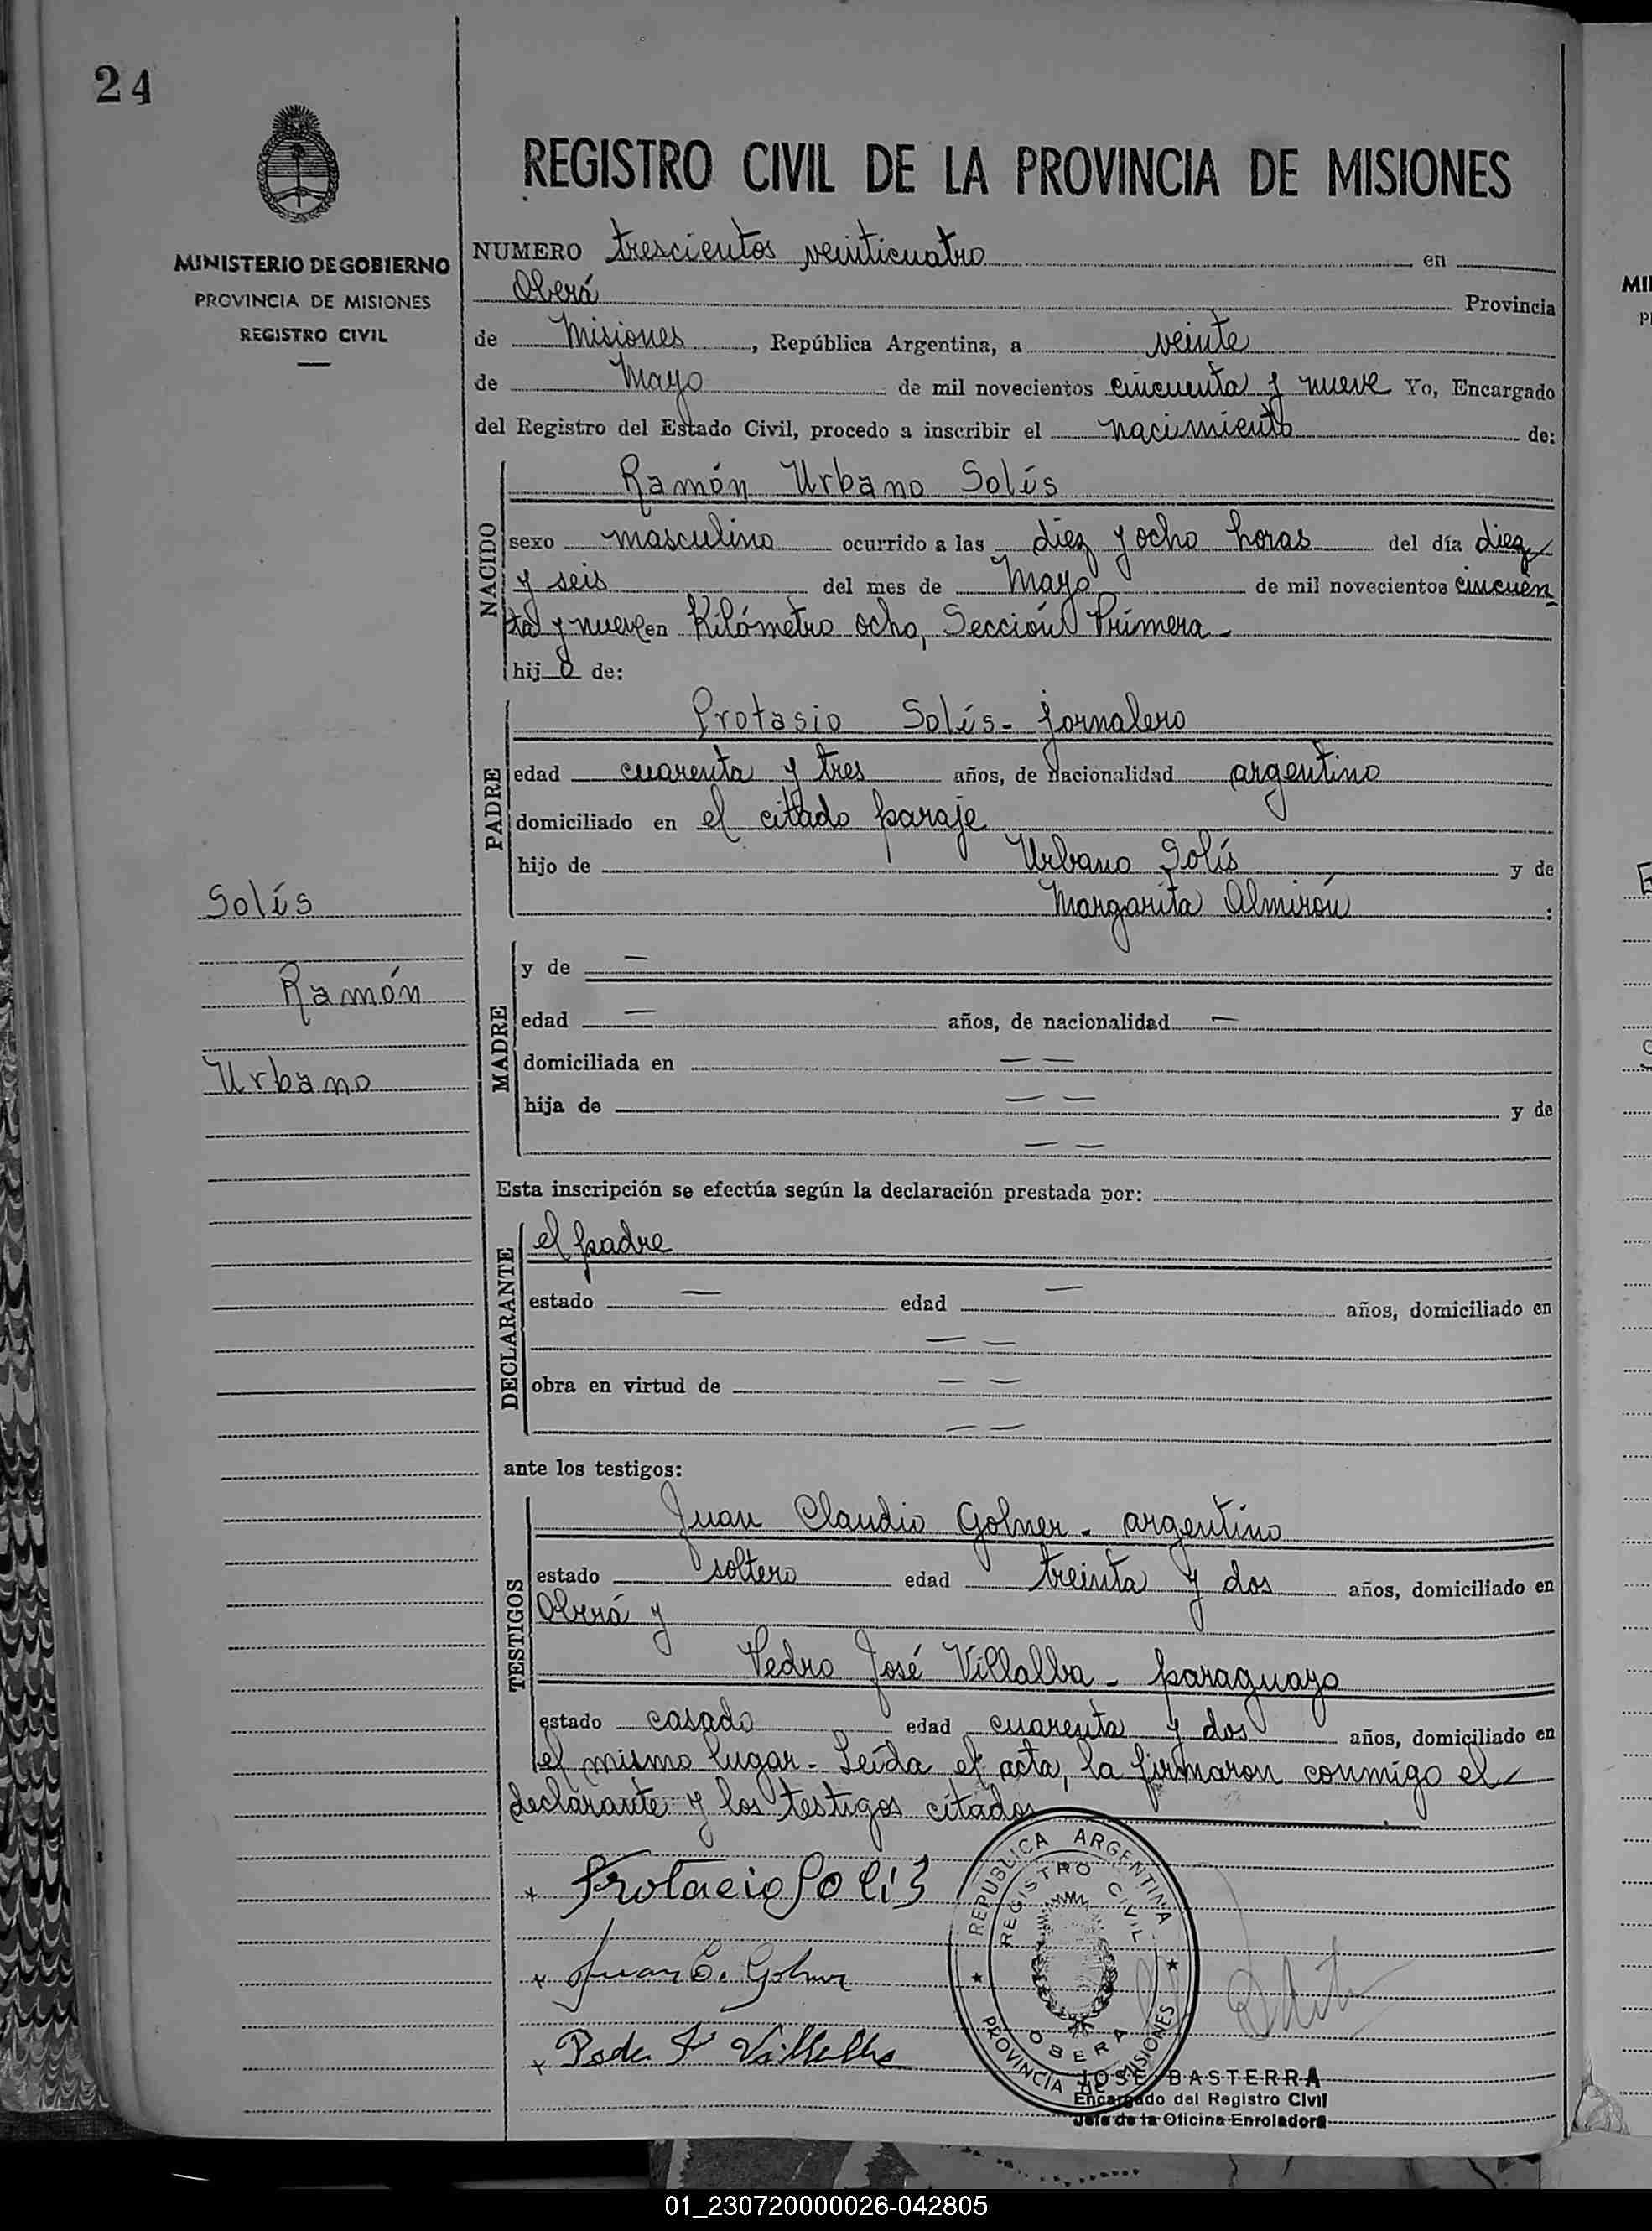 24
REGISTRO CIVIL DE LA PROVINCIA DE MISIONES
MINISTERIO DE GOBIERNO
PROVINCIA DE MISIONES
REGISTRO CIVIL
NUMERO trescientos veinticuatro en
Oberá Provincia
de Misiones, República Argentina, a veinte
de Mayo de mil novecientos cincuenta y nueve Yo, Encargado
del Registro del Estado Civil, procedo a inscribir el nacimiento de:
NACIDO
Ramón Urbano Solís
sexo masculino ocurrido a las diez y ocho horas del día diez
y seis del mes de Mayo de mil novecientos cincuen
ta y nueve en Kilómetro ocho, Sección Primera.
hijo de:
PADRE
Protasio Solís - jornalero
edad cuarenta y tres años, de nacionalidad argentino
domiciliado en el citado paraje
hijo de Urbano Solís y de
Margarita Almirón :
Solís
Ramón
Urbano
MADRE
y de —
edad — años, de nacionalidad —
domiciliada en — —
hija de — — y de
— —
Esta inscripción se efectúa según la declaración prestada por:
DECLARANTE
el padre
estado — edad — años, domiciliado en
— —
obra en virtud de — —
— —
ante los testigos:
TESTIGOS
Juan Claudio Golner - argentino
estado soltero edad treinta y dos años, domiciliado en
Oberá y
Pedro José Villalba - paraguayo
estado casado edad cuarenta y dos años, domiciliado en
el mismo lugar - Leída el acta, la firmaron conmigo el
declarante y los testigos citados
Protacio Solis
Juan C. Golner
Pedro J. Villalba
REPUBLICA ARGENTINA
REGISTRO CIVIL
OBERA
PROVINCIA DE MISIONES
JOSE BASTERRA
Encargado del Registro Civil
Jefe de la Oficina Enroladora
MI
P
01_230720000026-042805